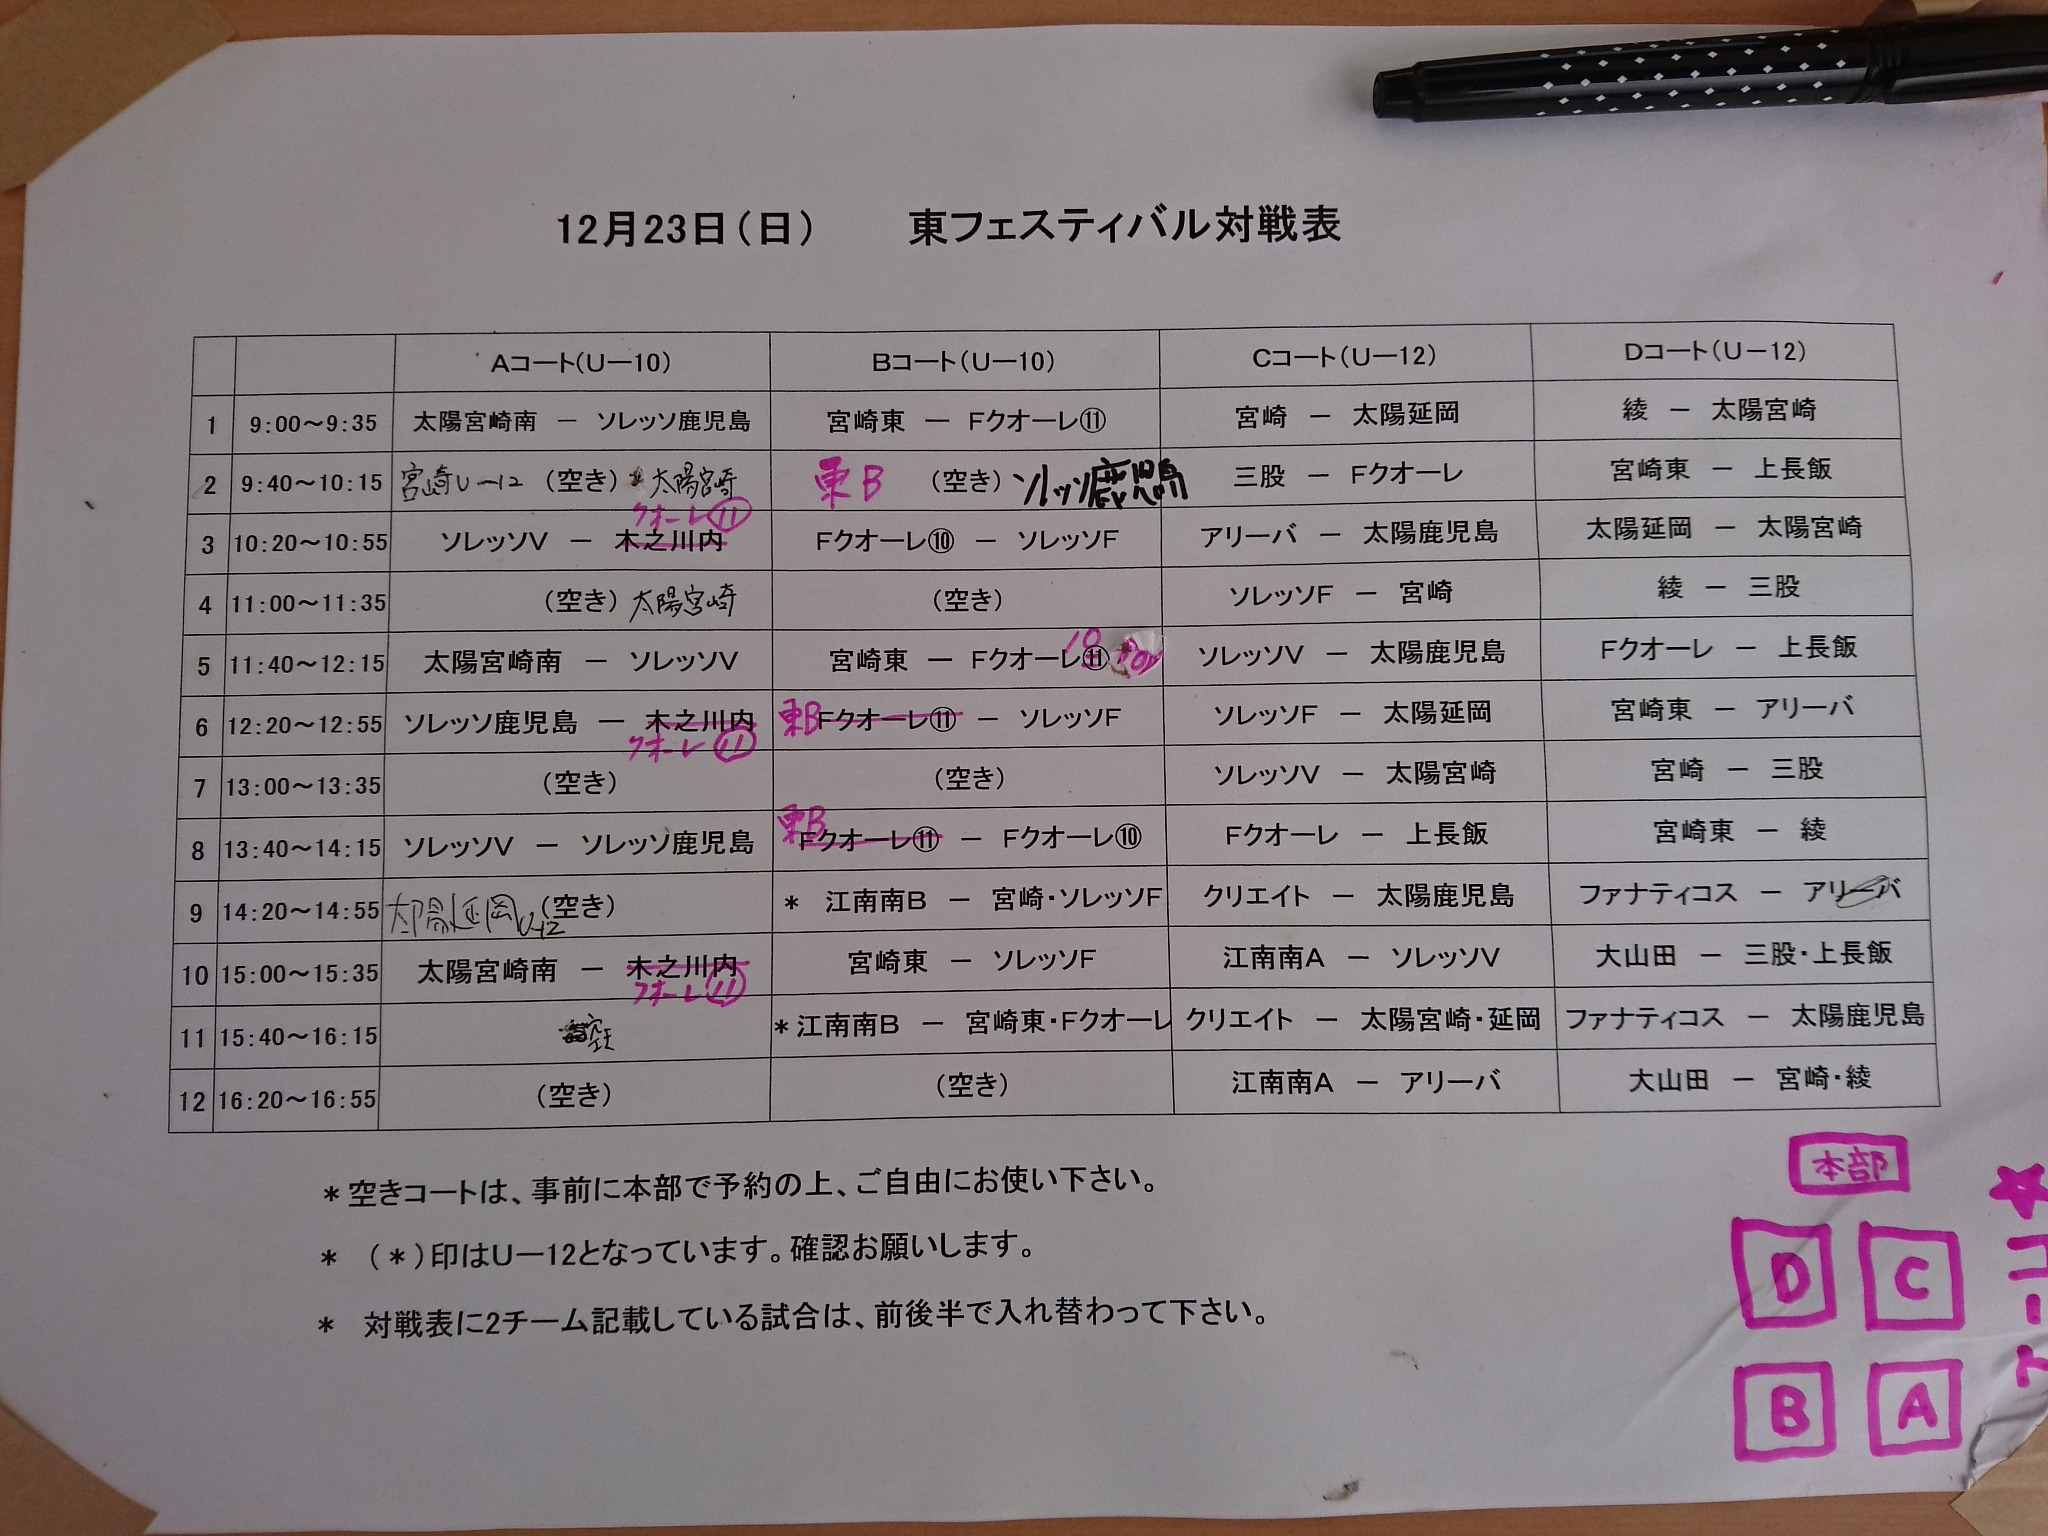 12月23日(日) 東フェスティバル対戦表
Aコート(U－10) Bコート(U－10) Cコート(U－12) Dコート(U－12)
1 9:00～9:35 太陽宮崎南 － ソレッソ鹿児島 宮崎東 － Fクオーレ⑪ 宮崎 － 太陽延岡 綾 － 太陽宮崎
2 9:40～10:15 宮崎U－12 (空き) 太陽宮崎 東B (空き) ソレッソ鹿児島 三股 － Fクオーレ 宮崎東 － 上長飯
クオーレ⑪
3 10:20～10:55 ソレッソV － 木之川内 Fクオーレ⑩ － ソレッソF アリーバ － 太陽鹿児島 太陽延岡 － 太陽宮崎
4 11:00～11:35 (空き) 太陽宮崎 (空き) ソレッソF － 宮崎 綾 － 三股
10
5 11:40～12:15 太陽宮崎南 － ソレッソV 宮崎東 － Fクオーレ⑪ ソレッソV － 太陽鹿児島 Fクオーレ － 上長飯
6 12:20～12:55 ソレッソ鹿児島 － 木之川内 東B Fクオーレ⑪ － ソレッソF ソレッソF － 太陽延岡 宮崎東 － アリーバ
クオーレ⑪
7 13:00～13:35 (空き) (空き) ソレッソV － 太陽宮崎 宮崎 － 三股
東B
8 13:40～14:15 ソレッソV － ソレッソ鹿児島 Fクオーレ⑪ － Fクオーレ⑩ Fクオーレ － 上長飯 宮崎東 － 綾
9 14:20～14:55 太陽延岡U-12 (空き) * 江南南B － 宮崎・ソレッソF クリエイト － 太陽鹿児島 ファナティコス － アリーバ
10 15:00～15:35 太陽宮崎南 － 木之川内 宮崎東 － ソレッソF 江南南A － ソレッソV 大山田 － 三股・上長飯
クオーレ⑪
11 15:40～16:15 空 *江南南B － 宮崎東・Fクオーレ クリエイト － 太陽宮崎・延岡 ファナティコス － 太陽鹿児島
12 16:20～16:55 (空き) (空き) 江南南A － アリーバ 大山田 － 宮崎・綾
*空きコートは、事前に本部で予約の上、ご自由にお使い下さい。
* (*)印はU－12となっています。確認お願いします。
* 対戦表に2チーム記載している試合は、前後半で入れ替わって下さい。
本部
★コート
D C
B A